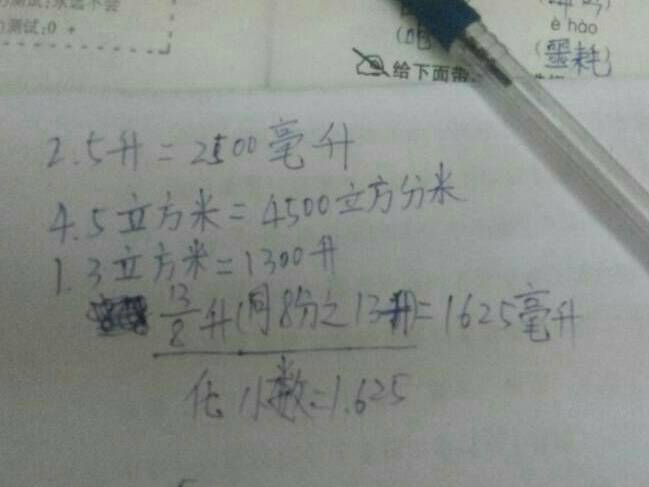 测试:永远不会
测试:0 +
è hào
(噩耗)
给下面带
2.5升=2500毫升
4.5立方米=4500立方分米
1.3立方米=1300升
13/8升(同8分之13升)=1625毫升
化小数=1.625